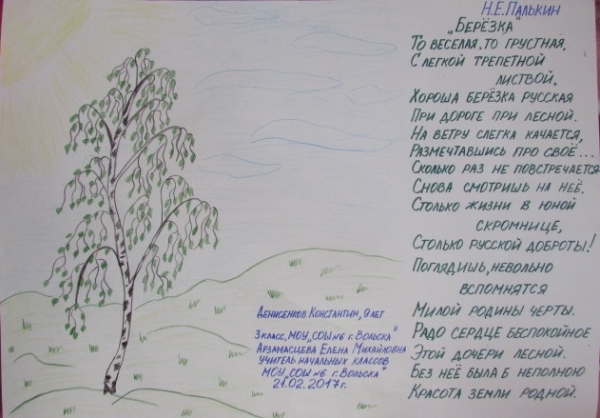 Н.Е.Палькин
„Берёзка"
То веселая, то грустная,
С легкой трепетной
листвой,
Хороша берёзка русская
При дороге при лесной.
На ветру слегка качается,
Размечтавшись про своё...
Сколько раз не повстречается
Снова смотришь на неё.
Столько жизни в юной
скромнице,
Столько русской доброты!
Поглядишь, невольно
вспомнятся
Милой родины черты.
Радо сердце беспокойное
Этой дочери лесной.
Без неё была б неполною
Красота земли родной.
Денисенков Константин, 9 лет
3 класс, МОУ „СОШ №6 г. Вольска"
Арзамасцева Елена Михайловна
учитель начальных классов
МОУ „СОШ №6 г. Вольска"
21.02.2017г.